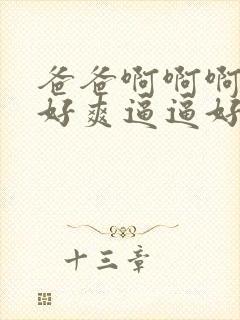 爸爸啊啊啊
好爽逼逼好
十三章